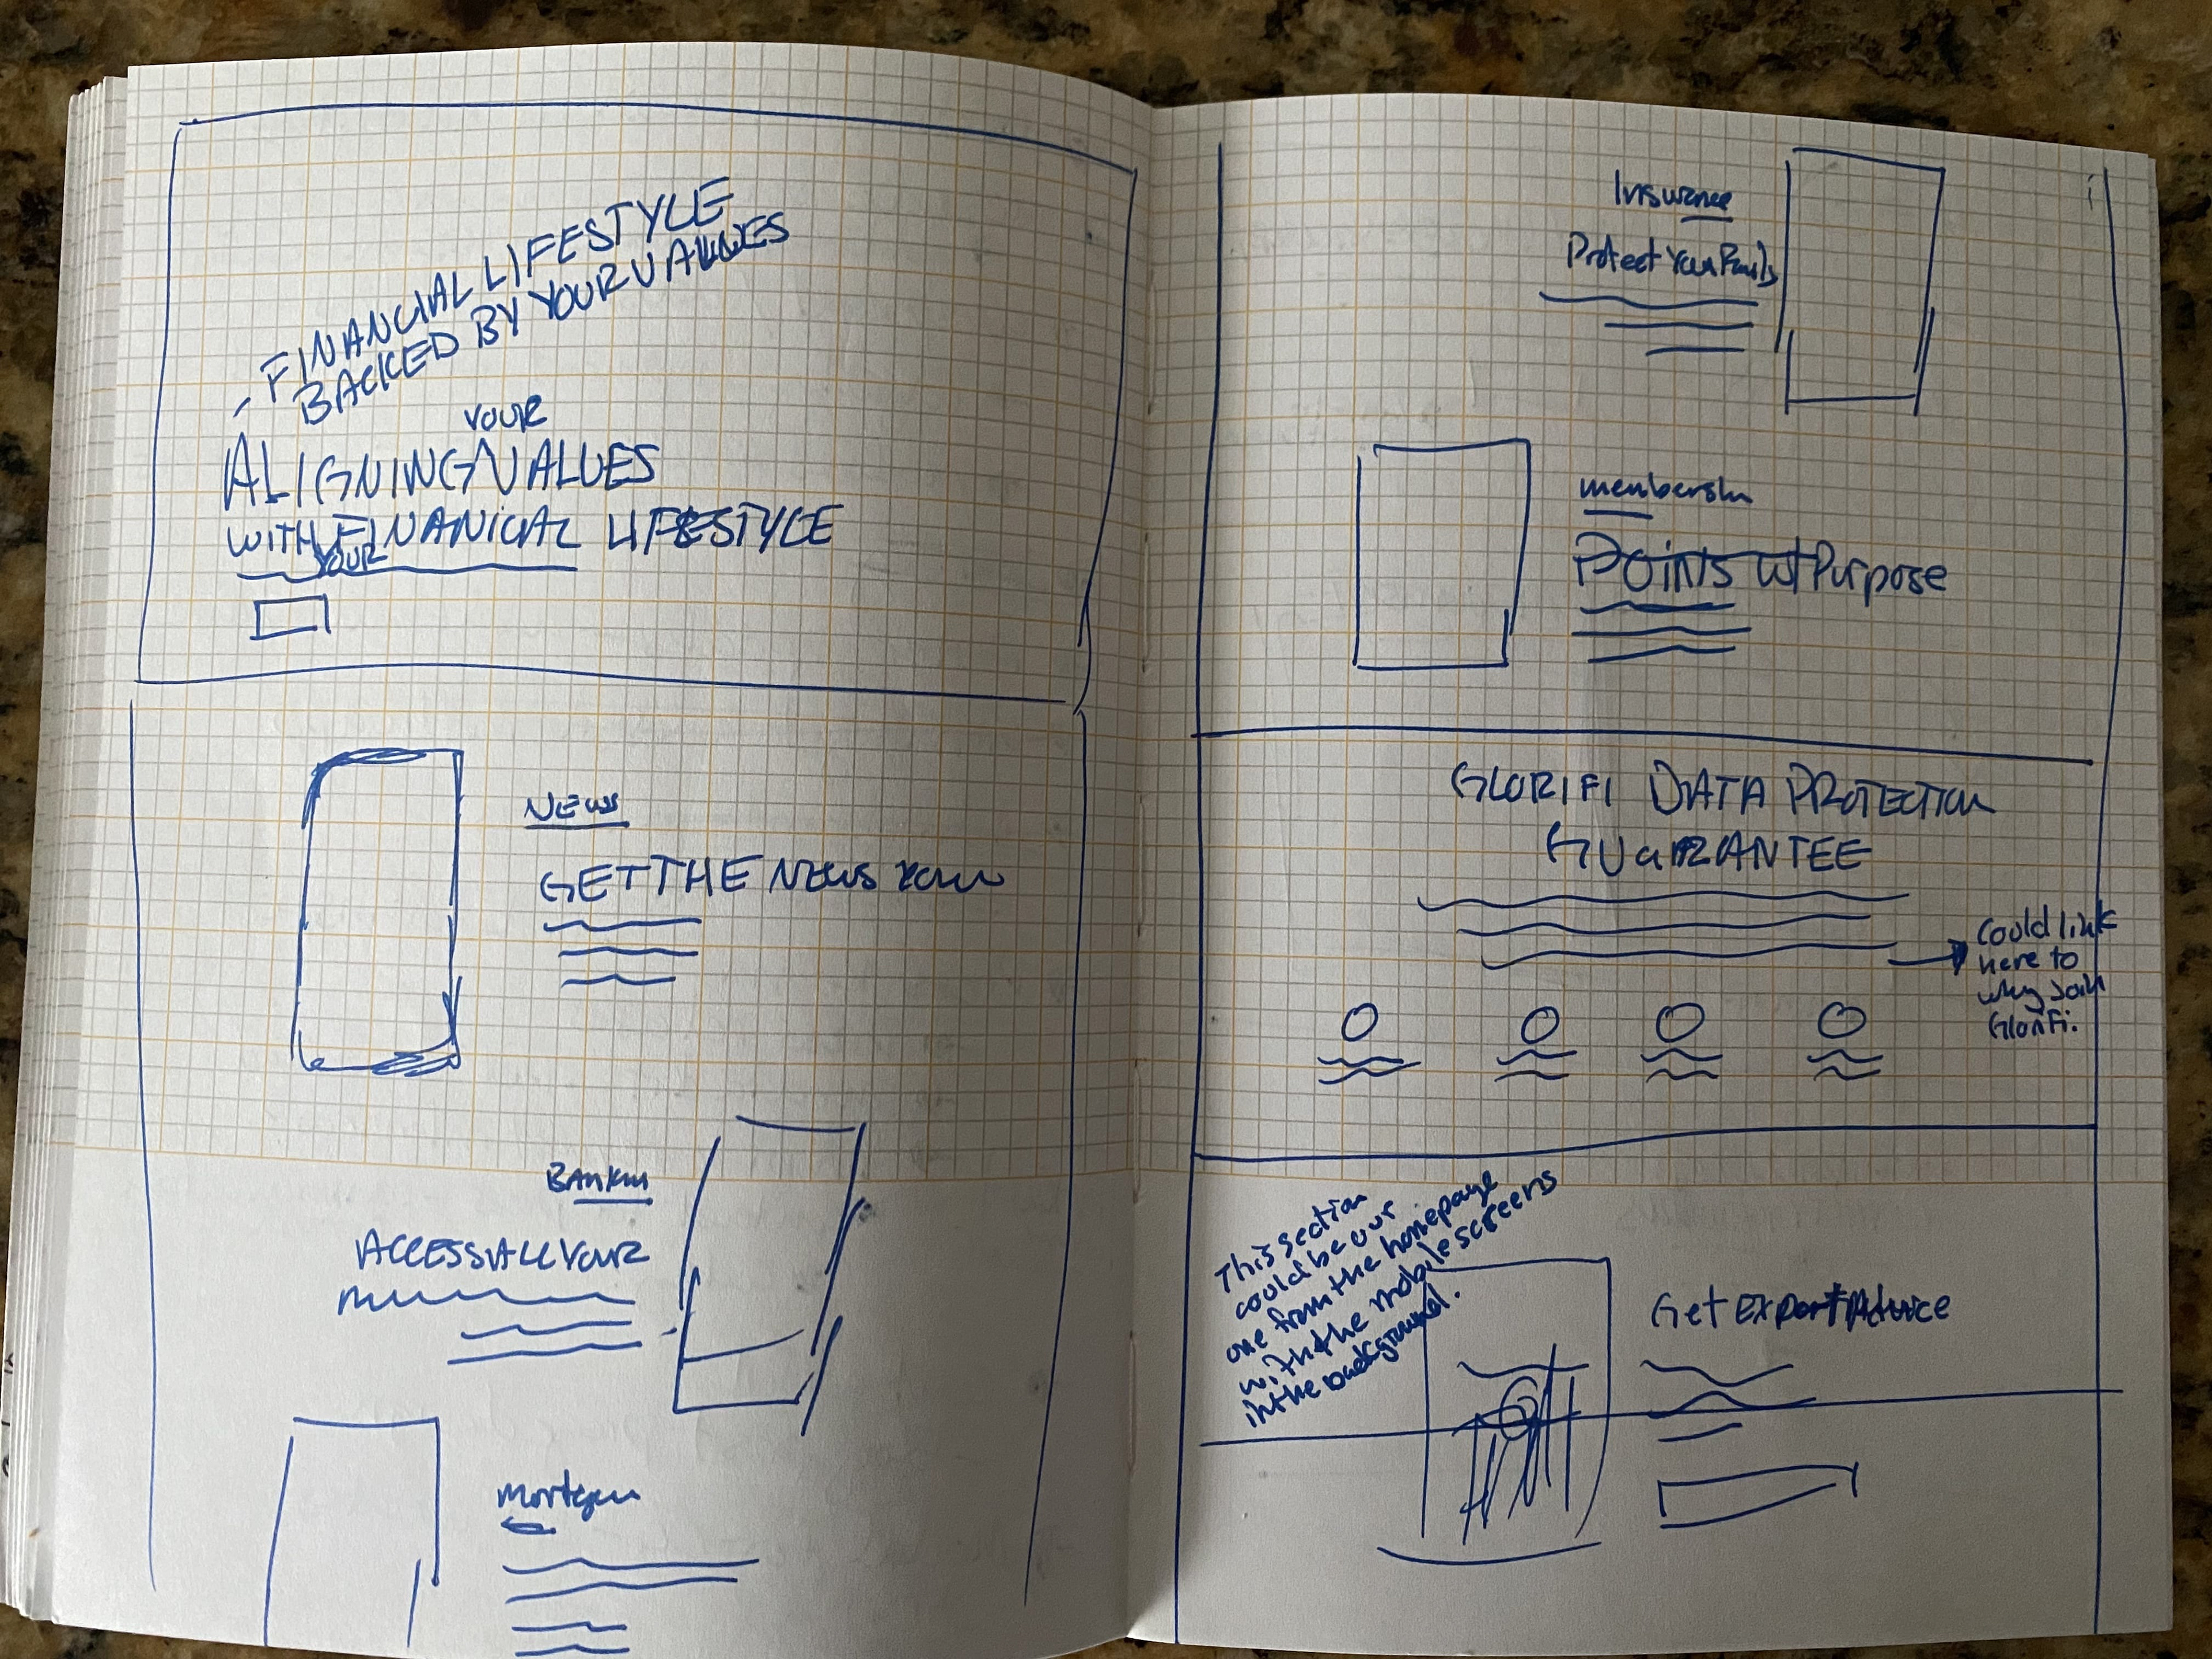 - FINANCIAL LIFESTYLE
BACKED BY YOUR VALUES
YOUR
ALIGNING ^ VALUES
WITH FINANICAL LIFESTYLE
YOUR
NEWS
GET THE NEWS YOU
Bankin
ACCESS ALL YOUR
Mortgage
Insurance
Protect Your Family
membership
Points w/ Purpose
GLORIFI DATA PROTECTION
GUARANTEE
Could link
here to
why Join
GloriFi.
This section
could be our
one from the homepage
with the mobile screens
in the background.
Get Expert Advice